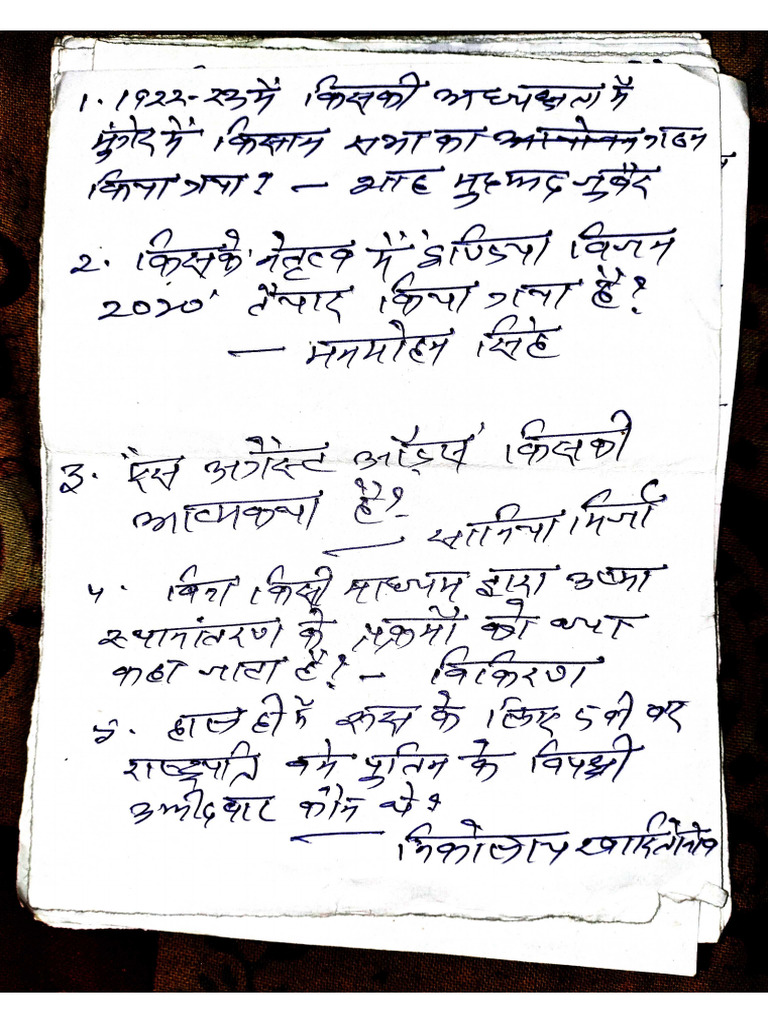 1. 1922-23 में किसकी अध्यक्षता में
मुंगेर में किसान सभा का गठन
किया गया? — शाह मुहम्मद जुबैर
2. किसके नेतृत्व में 'इण्डिया विजन
2020' तैयार किया गया है?
— मनमोहन सिंह
3. 'रेस अगेंस्ट ऑड्स' किसकी
आत्मकथा है?
— सानिया मिर्जा
4. बिना किसी माध्यम द्वारा उष्मा
स्थानांतरण के प्रक्रमों को क्या
कहा जाता है? — विकिरण
5. हाल ही में रूस के लिए 5वी बार
राष्ट्रपति बने पुतिन के विपक्षी
उम्मीदवार कौन थे?
— निकोलाय खारितोनोव